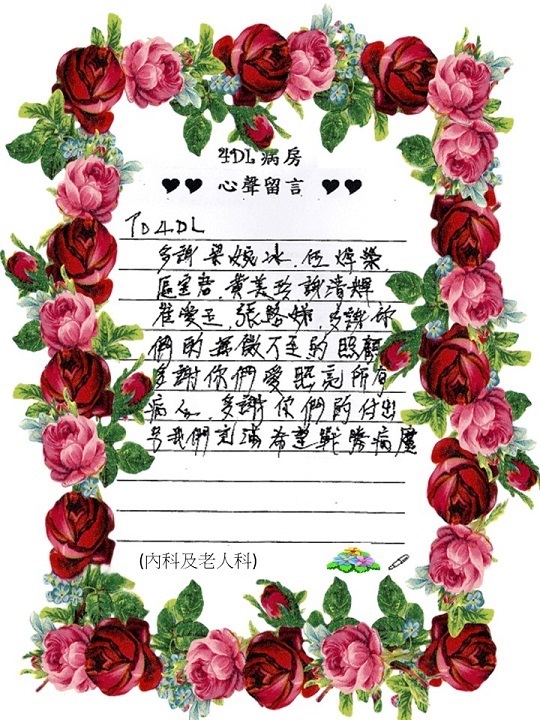 4DL 病房
♥♥ 心聲留言 ♥♥
TO 4DL
多謝 梁婉冰, 伍焯榮,
區寶君, 黃美珍 謝清輝
崔愛玉, 張路娣, 多謝你
們的無微不至的照顧
多謝你們愛照亮所有
病人, 多謝你們的付出
令我們充滿希望戰勝病魔
(內科及老人科)